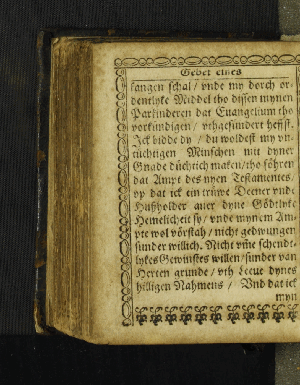 Gebet eines
fangen schal / vnde my dorch or-
dentlyke Middel tho dissen mynen
Parkinderen dat Euangelium tho
vorkündigen / vthgesundert heffst.
Jck bidde dy / du woldest my vn-
tüchtigen Minschen mit dyner
Gnade düchtich maken / tho föhren
dat Ampt des nyen Testamentes,
vp dat ick ein trüwe Deener vnde
Hußholder auer dyne Gödtlyke
Hemelicheit sy / vnde mynem Am-
pte wol vörstah / nicht gedwungen
sunder willich. Nicht vme schendt-
lykes Gewinstes willen / sunder van
Herten grunde / vth Leeue dynes
hilligen Nahmens / Vnd dat ick
myn